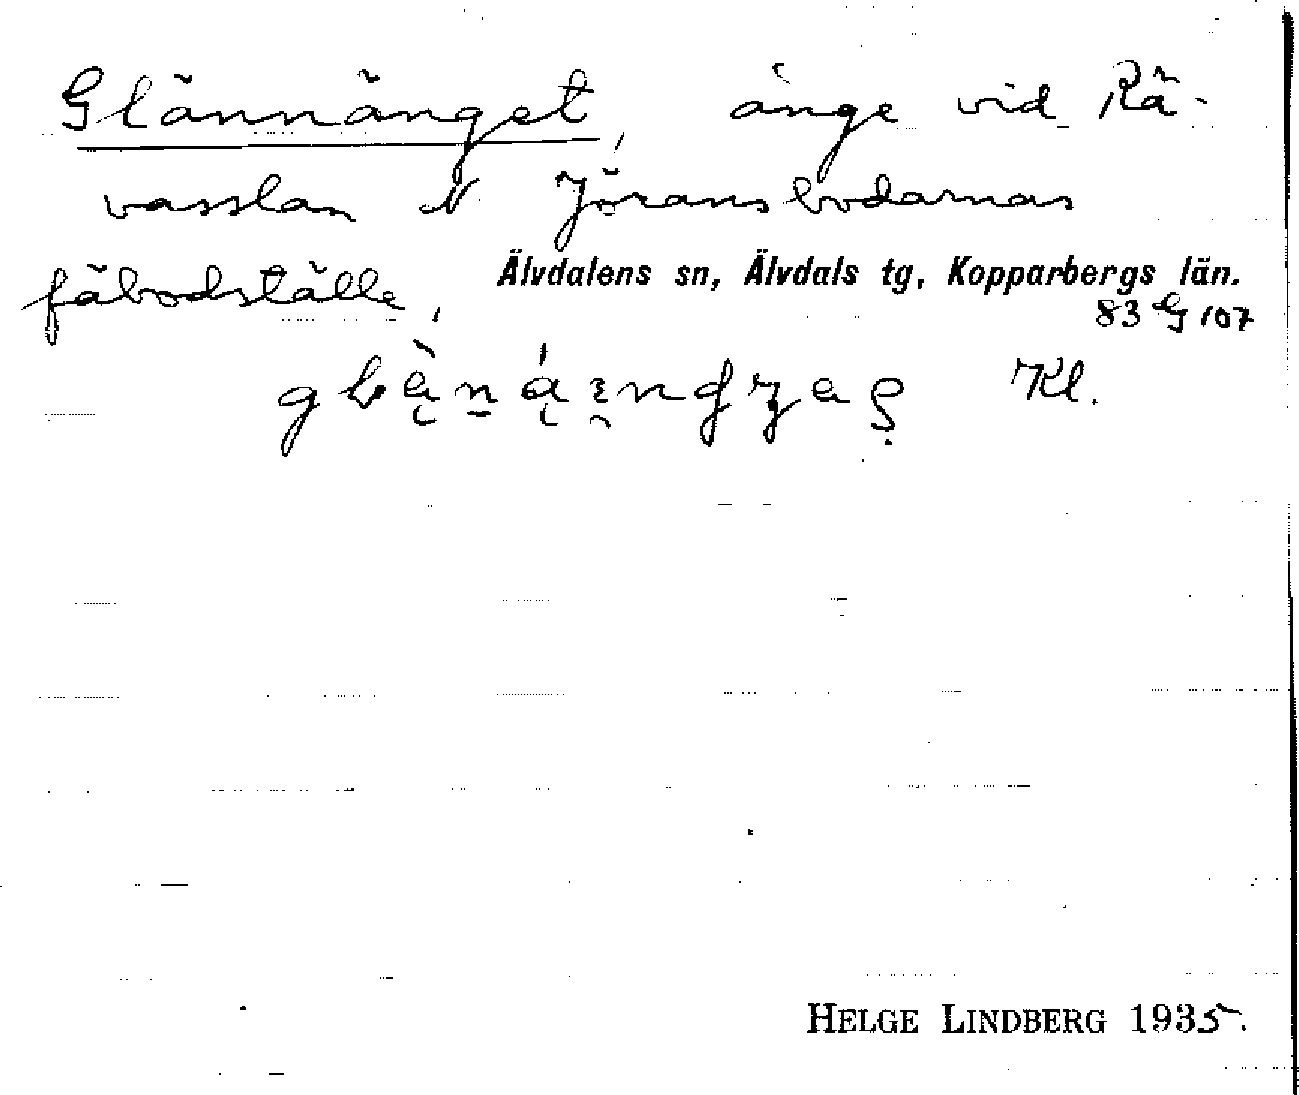 Glännänget, änge vid Rä-
vasslan N Jöransbodarnas
fäbodställe,
Älvdalens sn, Älvdals tg, Kopparbergs län.
83 G 107
Kl.
HELGE LINDBERG 1935.